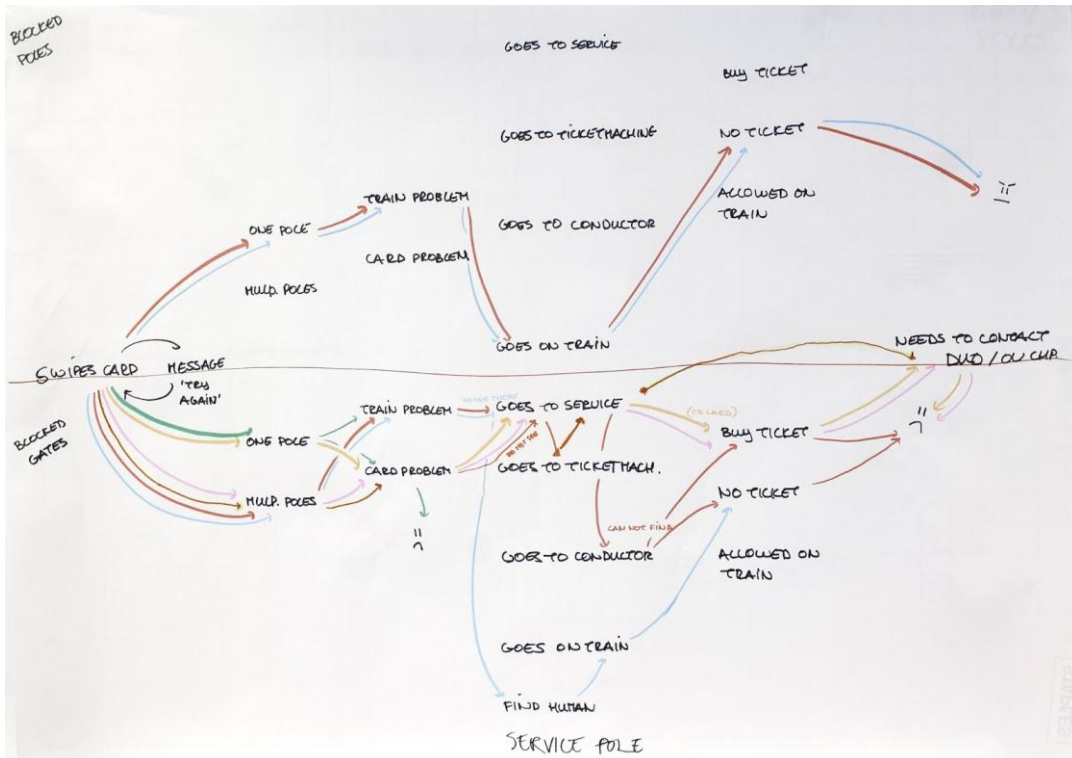 BLOCKED
POLES
GOES TO SERVICE
BUY TICKET
GOES TO TICKETMACHINE
NO TICKET
TRAIN PROBLEM
ALLOWED ON
TRAIN
ONE POLE
GOES TO CONDUCTOR
CARD PROBLEM
MULP. POLES
GOES ON TRAIN
NEEDS TO CONTACT
DUO / OV CHP.
SWIPES CARD
MESSAGE
'TRY
AGAIN'
BLOCKED
GATES
TRAIN PROBLEM
GOES TO SERVICE
(OR CARD)
ONE POLE
BUY TICKET
CARD PROBLEM
DO NOT SEE
GOES TO TICKETMACH.
MULP. POLES
NO TICKET
CAN NOT FIND
GOES TO CONDUCTOR
ALLOWED ON
TRAIN
GOES ON TRAIN
FIND HUMAN
SERVICE POLE
STAPLES